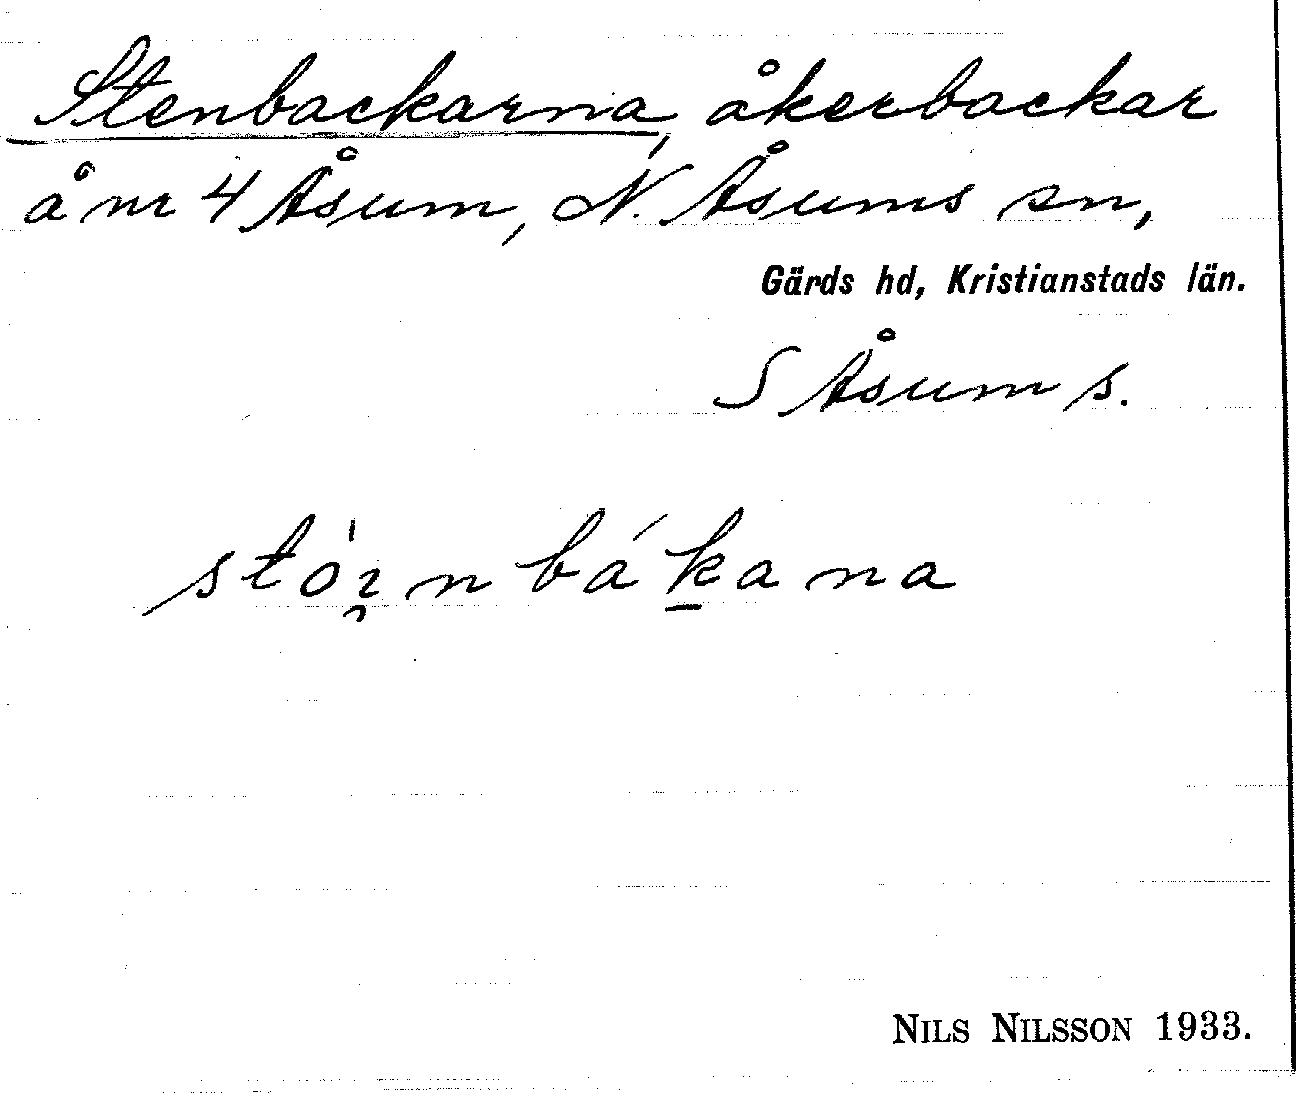 Stenbackarna, åkerbackar
å nr 4 Åsum, N. Åsums sn,
Gärds hd, Kristianstads län.
S Åsum s.
stóɪ̯nbákana
NILS NILSSON 1933.